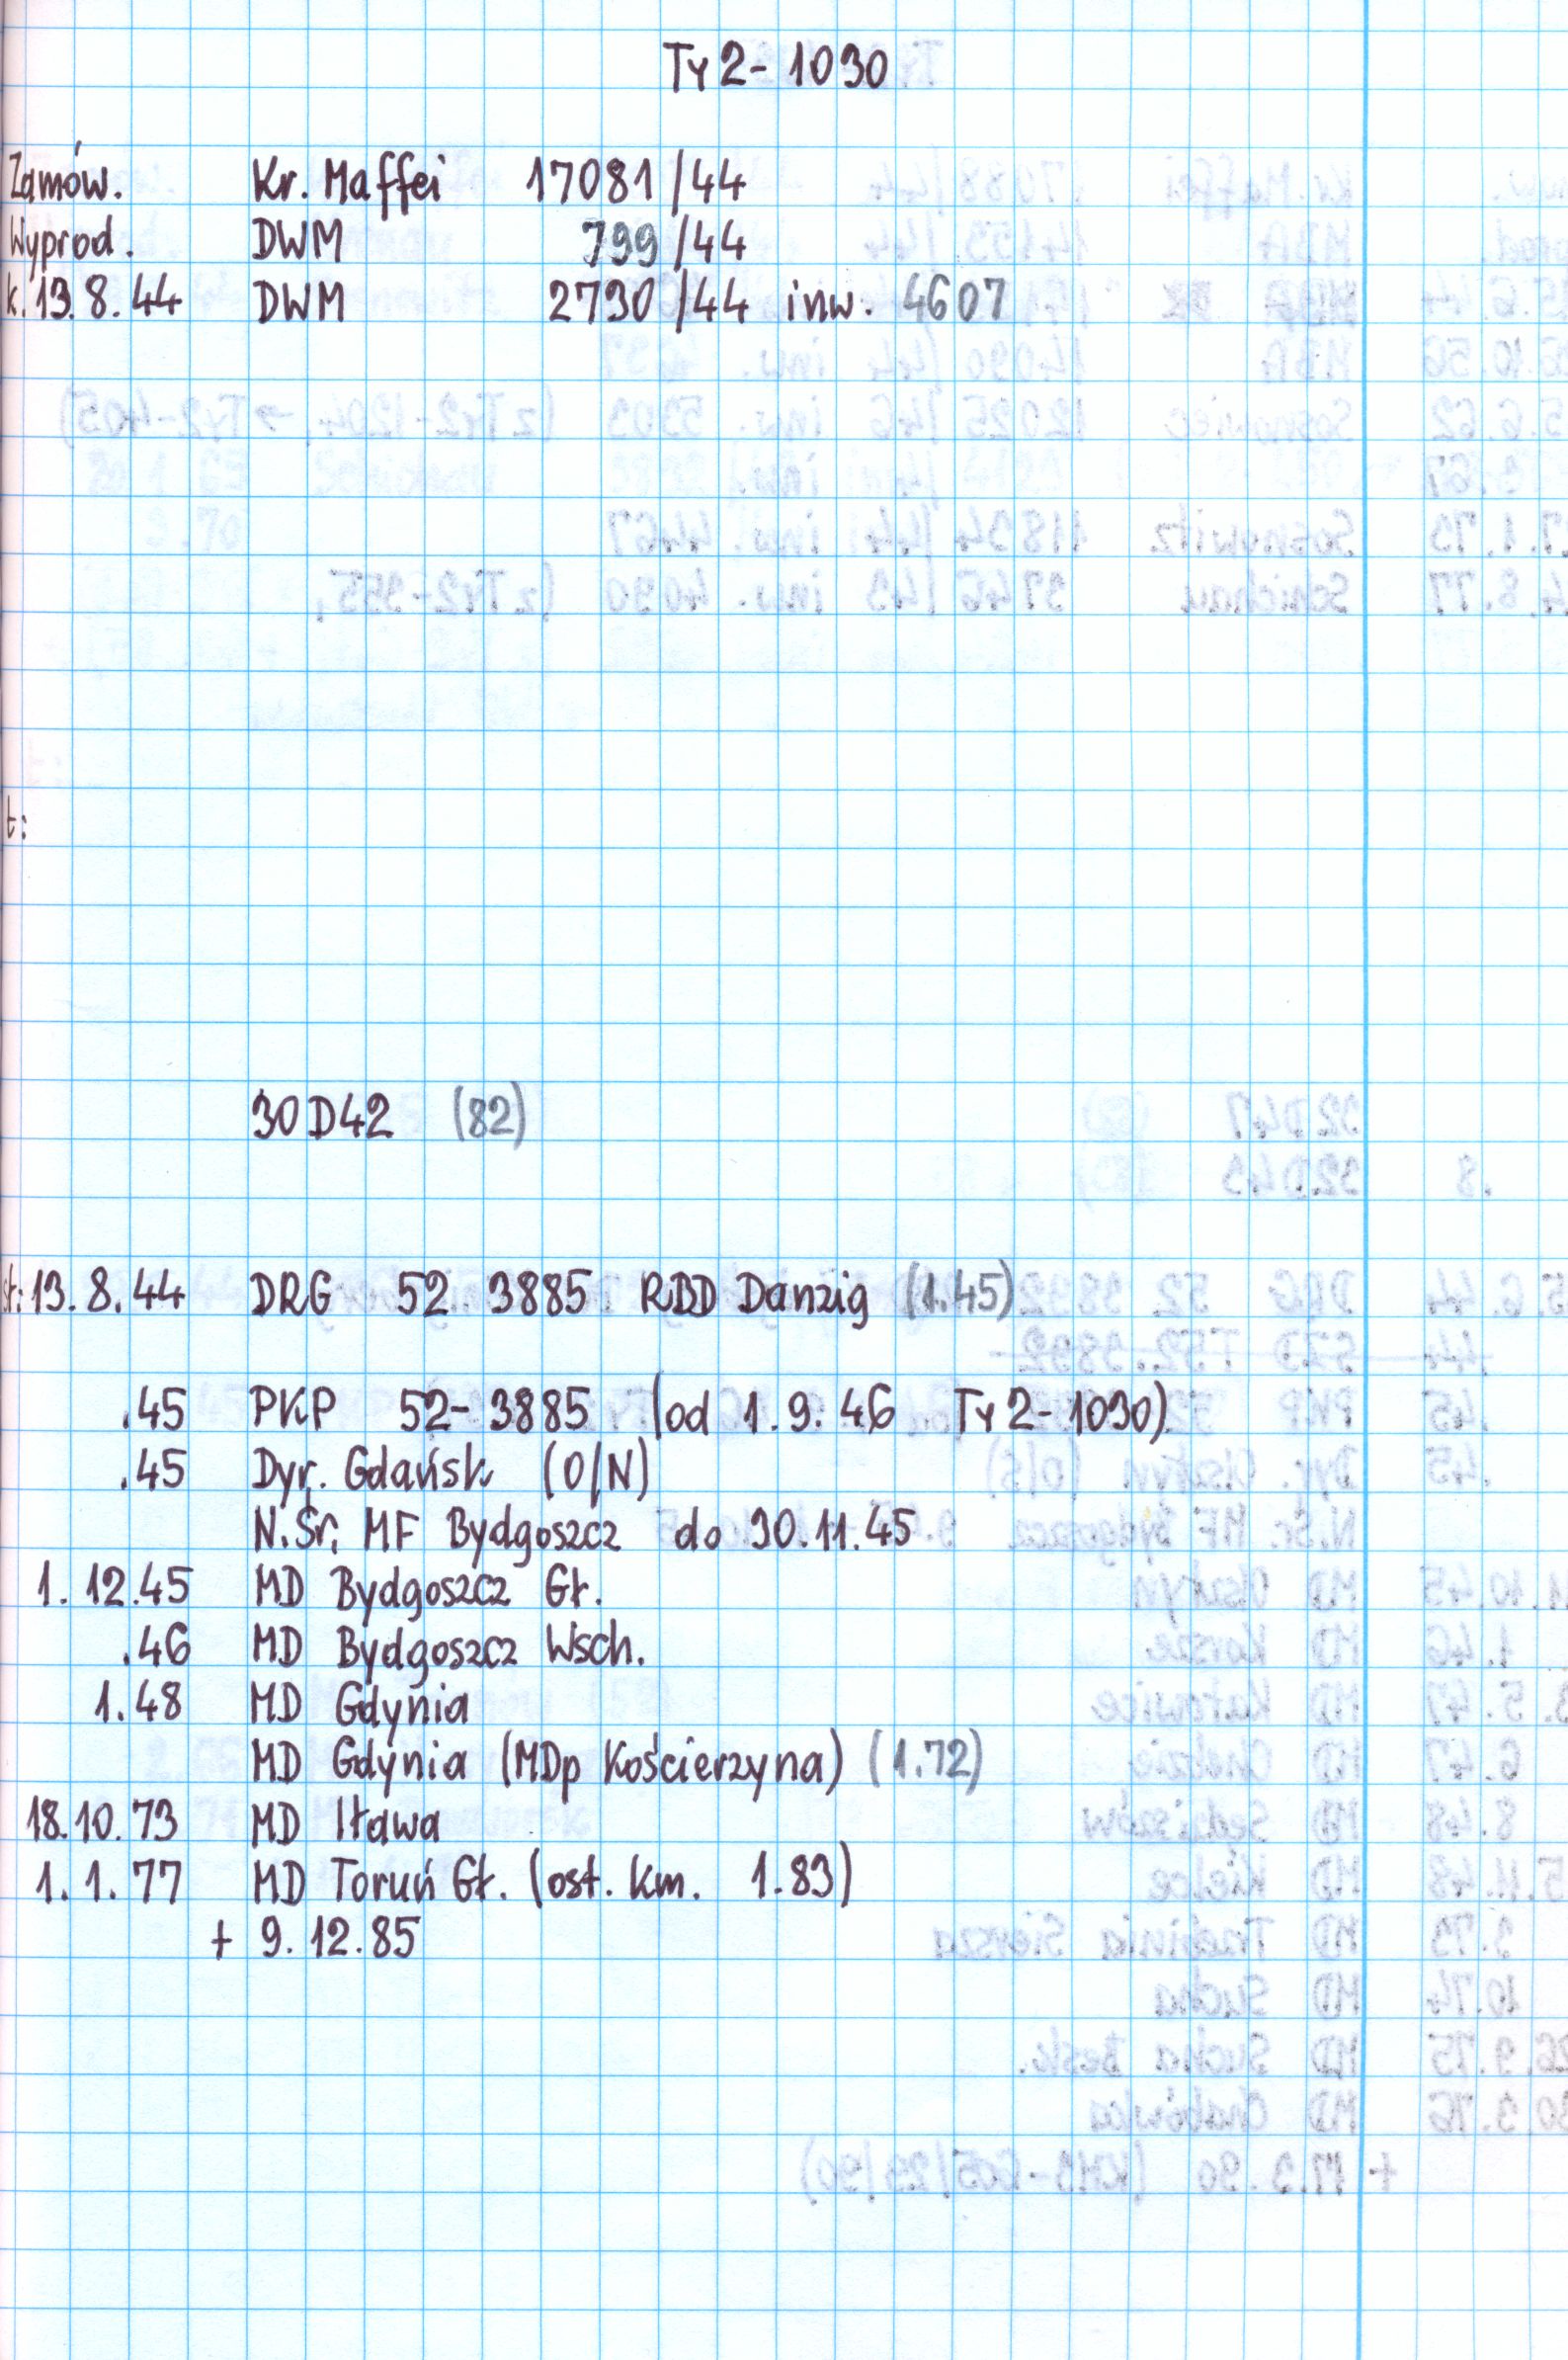 Ty2-1030
Zamów. Kr. Maffei 17081/44
Wyprod. DWM 799/44
k. 13.8.44 DWM 2730/44 inw. 4607
t:
30D42 (82)
st: 13.8.44 DRG 52 3885 RBD Danzig (1.45)
.45 PKP 52-3885 (od 1.9.46 Ty2-1030)
.45 Dyr. Gdańsk (O/N)
N.Śr. MF Bydgoszcz do 30.11.45
1.12.45 MD Bydgoszcz Gł.
.46 MD Bydgoszcz Wsch.
1.48 MD Gdynia
MD Gdynia (MDp Kościerzyna) (1.72)
18.10.73 MD Iława
1.1.77 MD Toruń Gł. (ost. km. 1.83)
+ 9.12.85